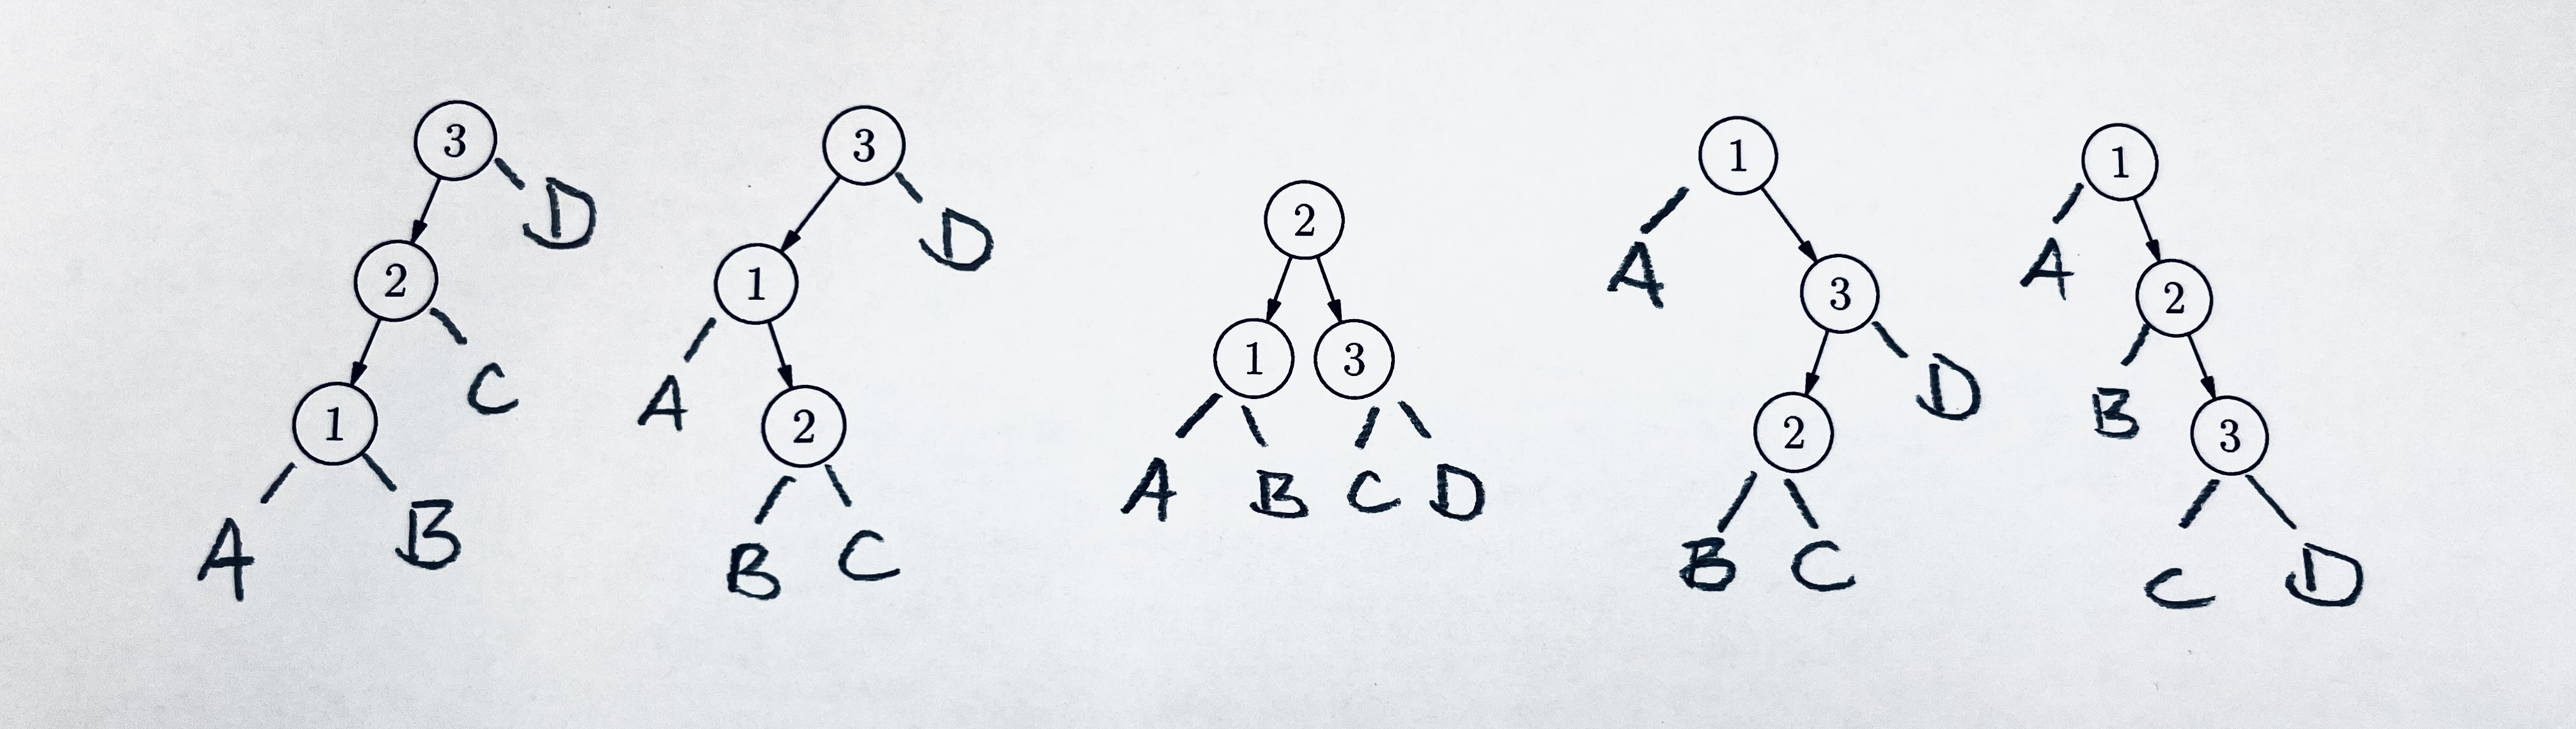 3 D 2 C 1 A B
3 D 1 A 2 B C
2 1 3 A B C D
1 A 3 D 2 B C
1 A 2 B 3 C D